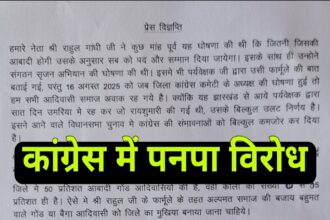 प्रेस विज्ञप्ति
हमारे नेता श्री राहुल गांधी जी ने कुछ मांह पूर्व यह घोषणा की थी कि जितनी जिसकी
आबादी होगी उसके अनुसार सब को पद और सम्मान दिया जायेगा। इसके साथ ही उन्होने
संगठन सृजन अभियान की घोषणा की थी। इसमे भी पर्यवेक्षक जी द्वारा उसी फार्मूले की बात
बताई गई, परंतु 16 अगस्त 2025 को जब जिला कांग्रेस कमेटी के अध्यक्ष की घोषणा हुई तो
हम सभी आदिवासी समाज अवाक रह गये है। क्योंकि यह झारखण्ड से आये पर्यवेक्षक जी द्वारा
सात दिन उमरिया मे रह कर जो रायशुमारी की गई थी, उसके बिल्कुल उलट निर्णय है।
इसने आने वाले विधानसभा चुनाव मे कांग्रेस की संभावनाओं को बिल्कुल कमजोर कर दिया
है।
कांग्रेस में पनपा विरोध
जिले में 50 प्रतिशत आबादी गोंड आदिवासियों की है, वही कोलों की संख्या
ही है। ऐसे मे श्री राहुल जी के फार्मूले के तहत अल्पमत समाज की बजाय बहुमत
वाले गोंड या बैगा आदिवासी को जिले का मुखिया बनाया जाना चाहिये।